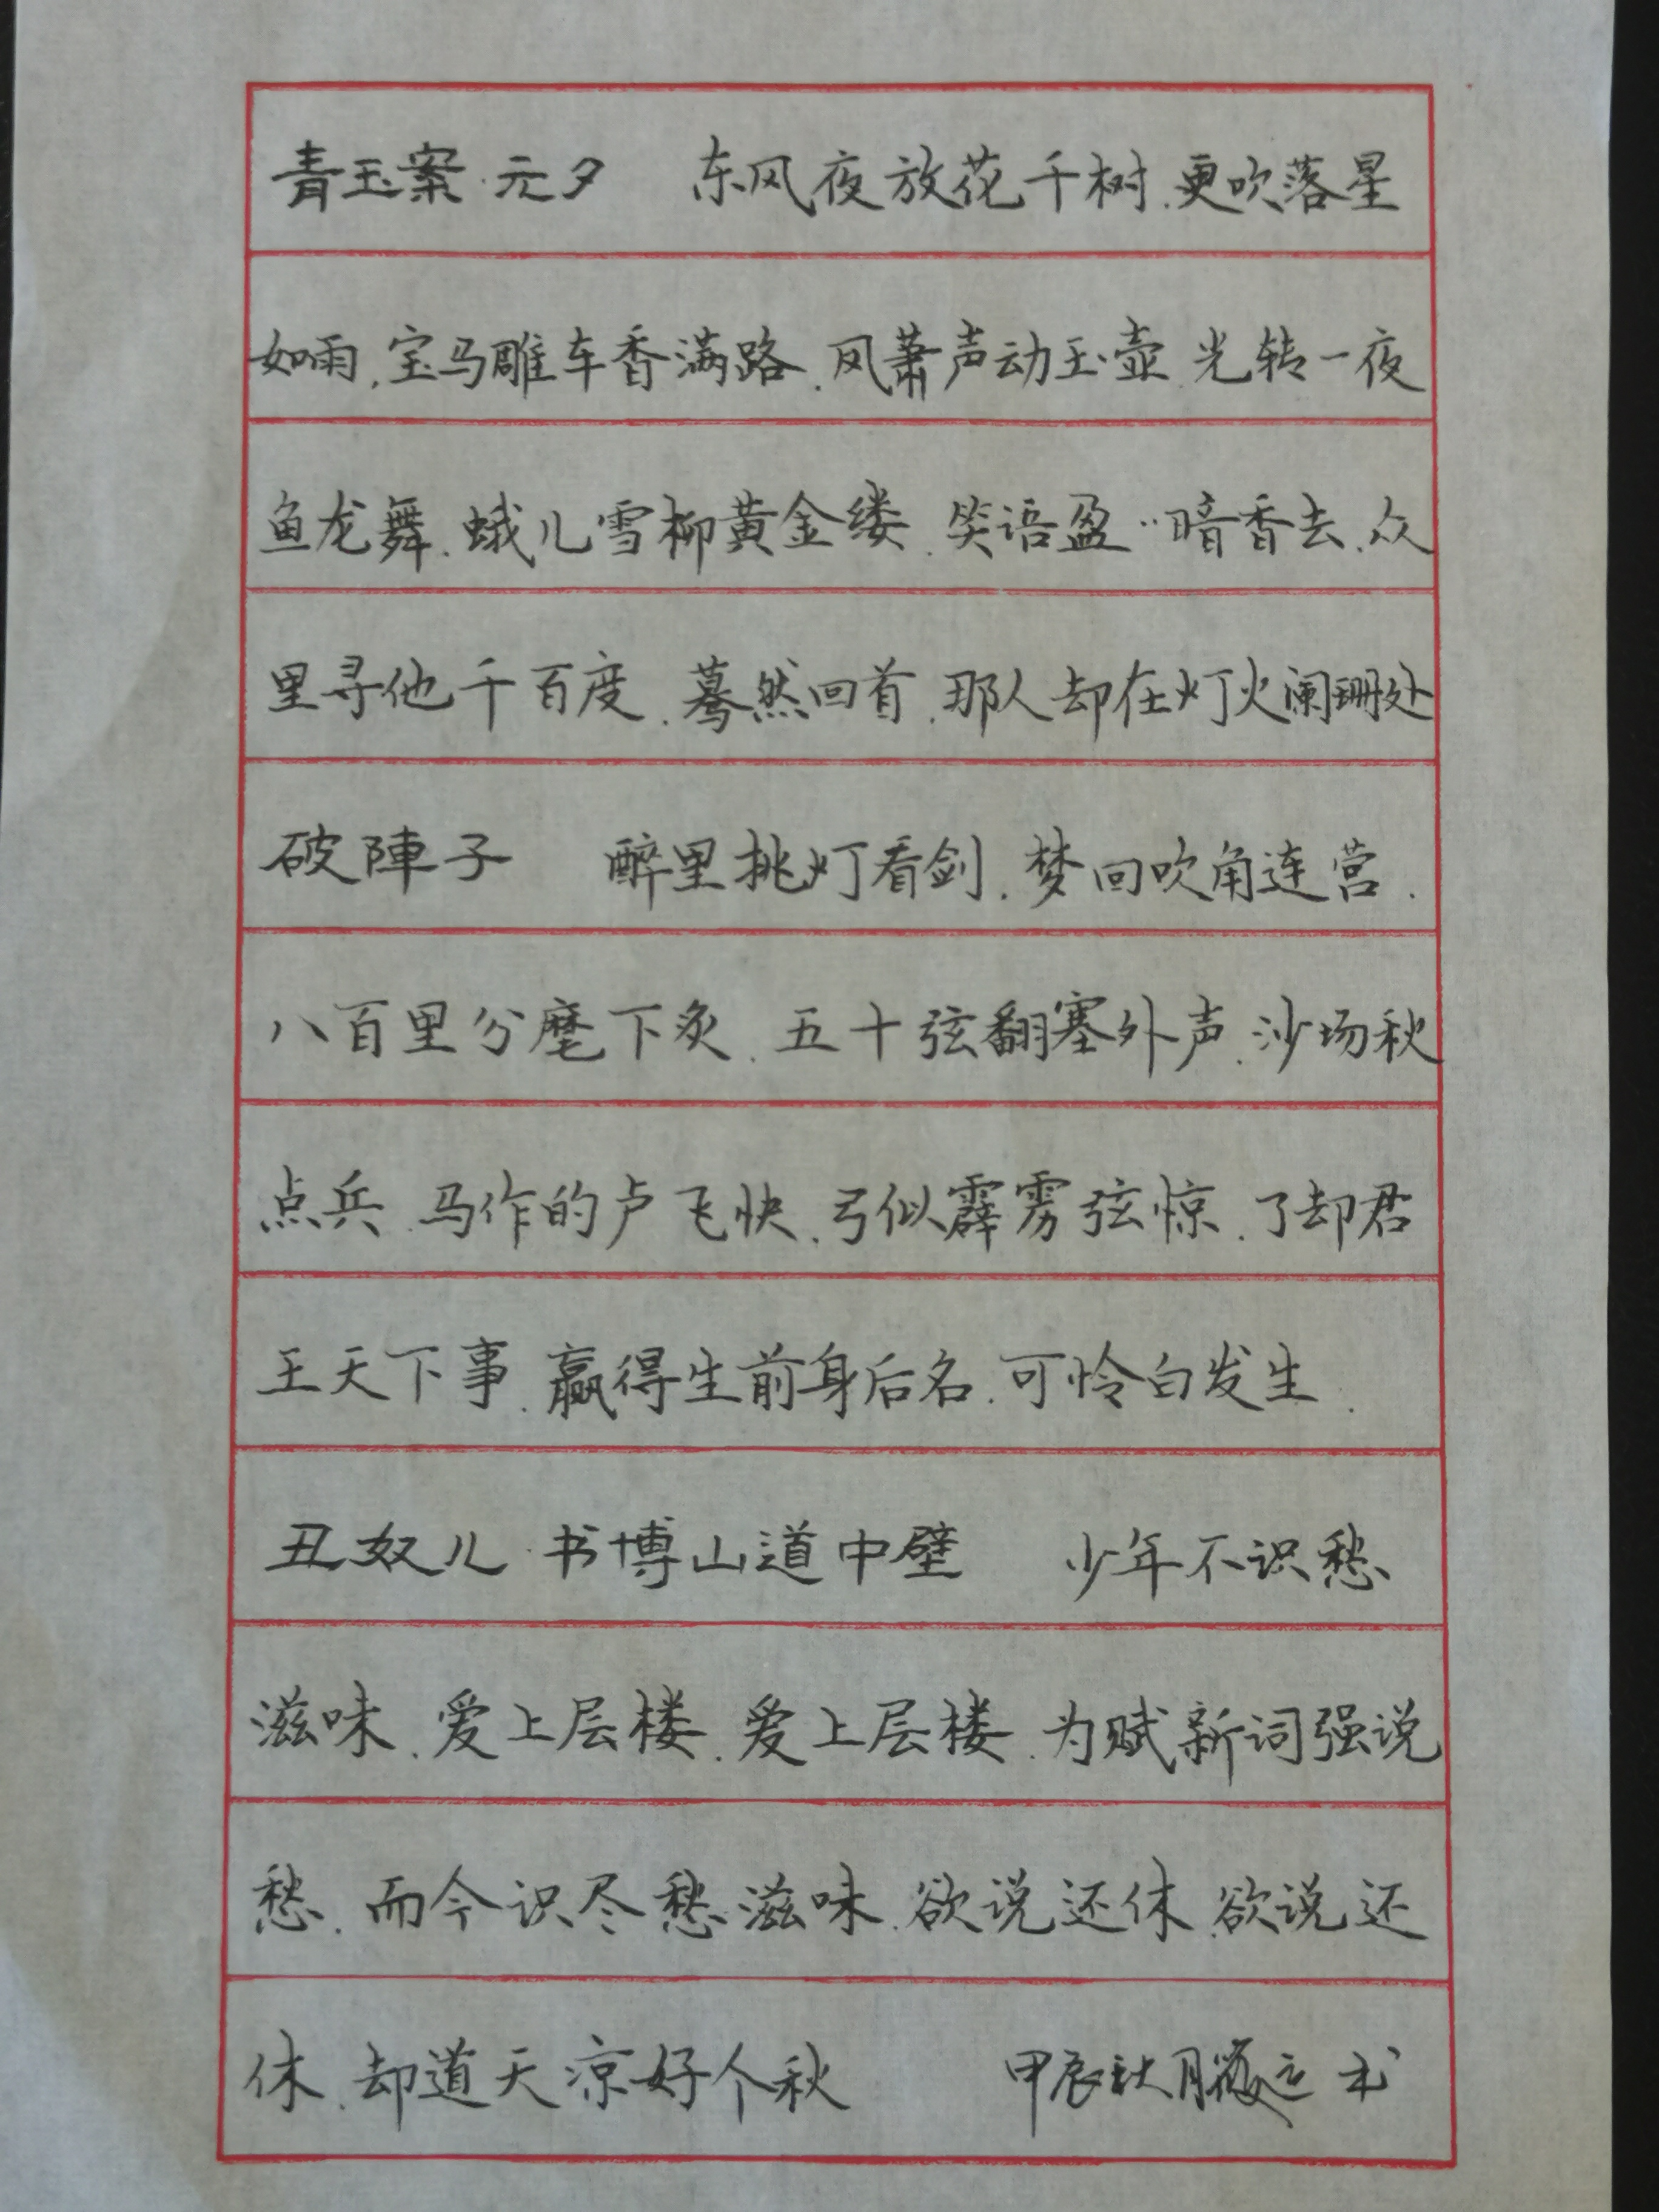 青玉案·元夕 东风夜放花千树.更吹落星
如雨.宝马雕车香满路.风萧声动玉壶.光转一夜
鱼龙舞.蛾儿雪柳黄金缕.笑语盈〃暗香去.众
里寻他千百度.蓦然回首.那人却在灯火阑珊处
破陣子 醉里挑灯看剑.梦回吹角连营.
八百里分麾下炙.五十弦翻塞外声.沙场秋
点兵.马作的卢飞快.弓似霹雳弦惊.了却君
王天下事.赢得生前身后名.可怜白发生.
丑奴儿·书博山道中壁 少年不识愁
滋味.爱上层楼.爱上层楼.为赋新词强说
愁.而今识尽愁滋味.欲说还休.欲说还
休.却道天凉好个秋 甲辰秋月